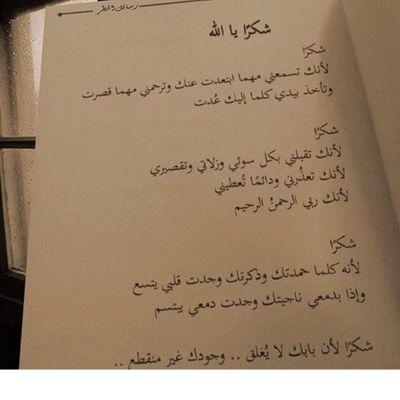 رسائل والمطر
شكرًا يا الله
شكرًا
لأنك تسمعني مهما ابتعدت عنك وترحمني مهما قصرت
وتأخذ بيدي كلما إليك عُدت
شكرًا
لأنك تقبلني بكل سوئي وزلاتي وتقصيري
لأنك تعذُرني ودائمًا تُعطيني
لأنك ربي الرحمنُ الرحيم
شكرًا
لأنه كلما حمدتك وذكرتك وجدت قلبي يتسع
وإذا بدمعي ناجيتك وجدت دمعي يبتسم
شكرًا لأن بابك لا يُغلق .. وجودك غير منقطع ..